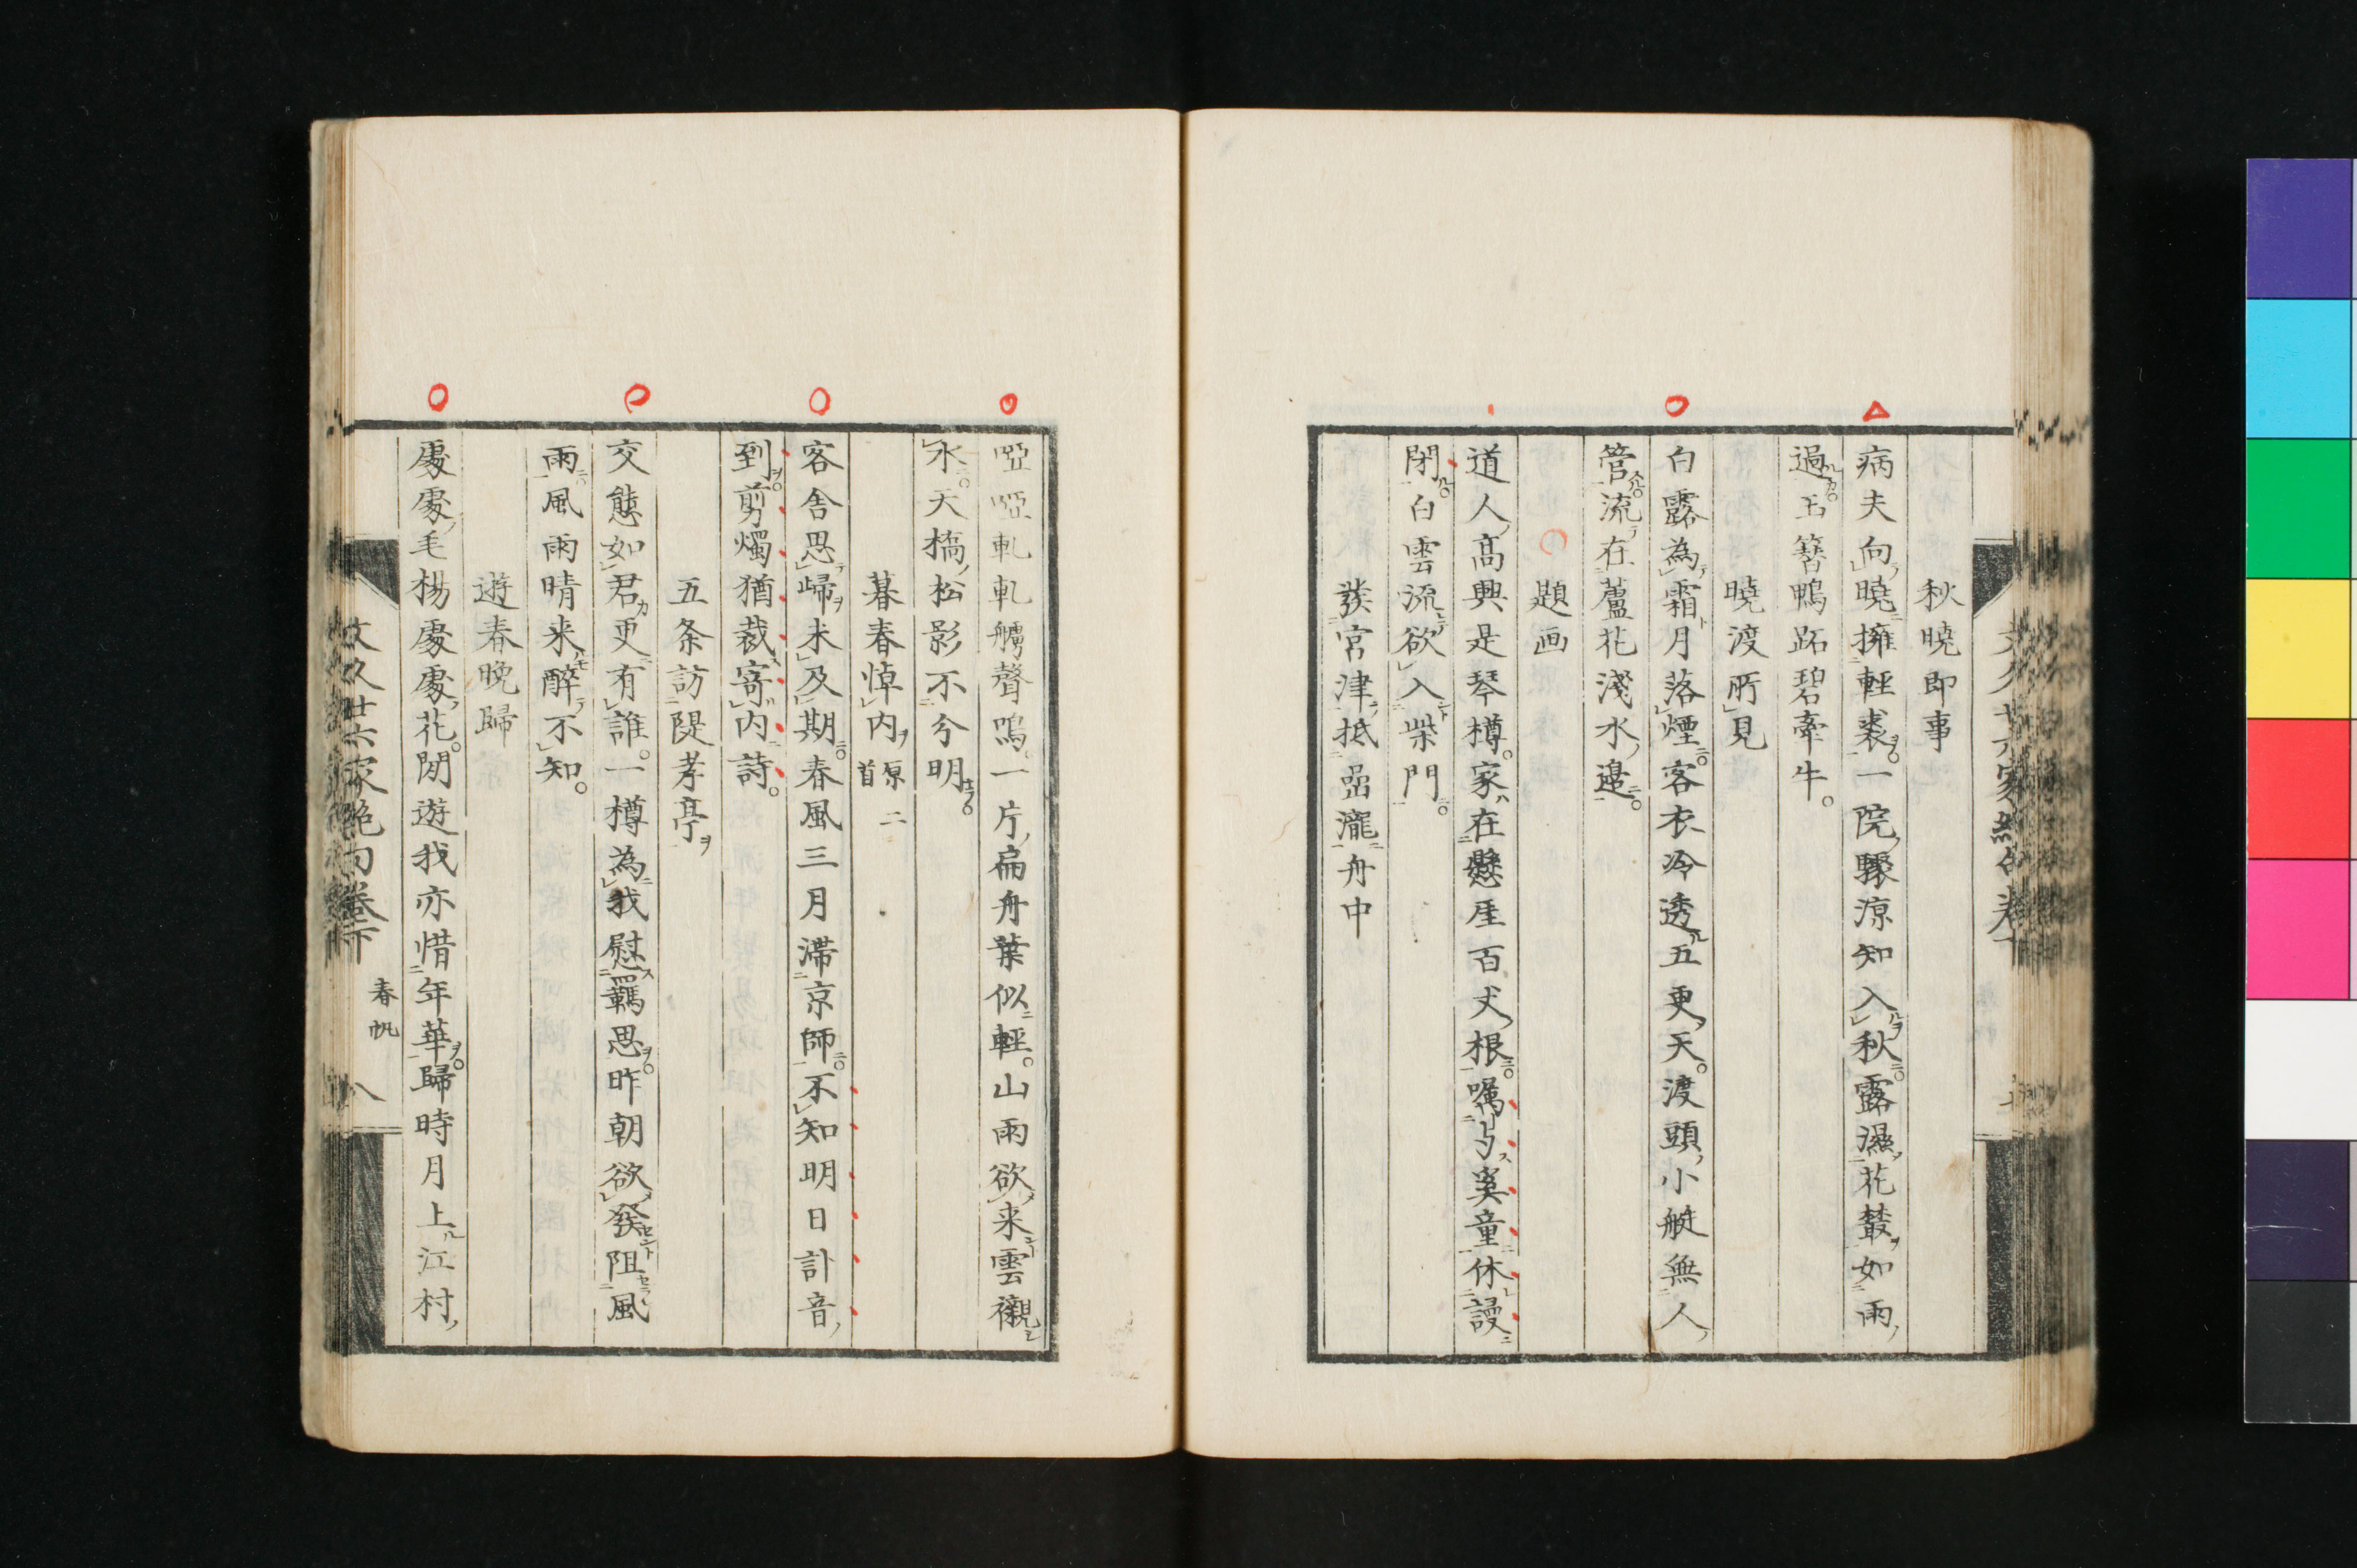 秋曉即事
病夫向曉擁輕裘一院驟涼知入秋露濕花叢如雨
過玉簪鴨跖碧牽牛
曉渡所見
白露為霜月落煙客衣冷透五更天渡頭小艇無人
管流在蘆花淺水邉
題画
道人高興是琴樽家在懸厓百丈根嘱与奚童休謾
閉白雲流欲入柴門
發宮津抵嵒瀧舟中
啞啞軋軋艣聲鳴一片扁舟葉似輕山雨欲来雲襯
水天橋松影不分明
暮春悼内 原二首
客舎思歸未及期春風三月滞京師不知明日訃音
到剪燭猶裁寄内詩
五条訪隄孝亭
交態如君更有誰一樽為我慰羈思昨朝欲發阻風
雨風雨晴来醉不知
遊春晩歸
處處毛楊處處花閒遊我亦惜年華歸時月上江村
文久廿六家絶句巻下 春帆 八